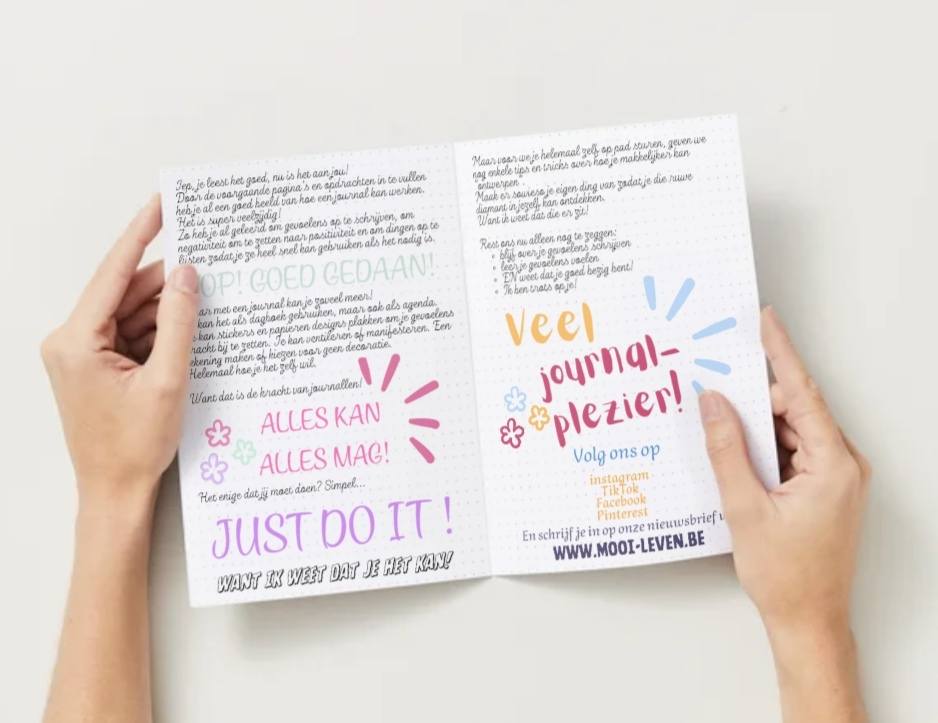 Jep, je leest het goed, nu is het aan jou!
Door de voorgaande pagina's en opdrachten in te vullen
heb je al een goed beeld van hoe een journal kan werken.
Het is super veelzijdig!
Zo heb je al geleerd om gevoelens op te schrijven, om
negativiteit om te zetten naar positiviteit en om dingen op te
lijsten zodat je ze heel snel kan gebruiken als het nodig is.
OP! GOED GEDAAN!
aar met een journal kan je zoveel meer!
kan het als dagboek gebruiken, maar ook als agenda.
kan stickers en papieren designs plakken om je gevoelens
racht bij te zetten. Je kan ventileren of manifesteren. Een
ekening maken of kiezen voor geen decoratie.
Helemaal hoe je het zelf wil.
Want dat is de kracht van journallen!
ALLES KAN
ALLES MAG!
Het enige dat jij moet doen? Simpel...
JUST DO IT !
WANT IK WEET DAT JE HET KAN!
Maar voor we je helemaal zelf op pad sturen, geven we
nog enkele tips en tricks over hoe je makkelijker kan
ontwerpen .
Maak er sowieso je eigen ding van zodat je die ruwe
diamant in jezelf kan ontdekken.
Want ik weet dat die er zit!
Rest ons nu alleen nog te zeggen:
• blijf over je gevoelens schrijven
• leer je gevoelens voelen
• EN weet dat je goed bezig bent!
• Ik ben trots op je!
Veel
journal-
plezier!
Volg ons op
instagram
TikTok
Facebook
Pinterest
En schrijf je in op onze nieuwsbrief
WWW.MOOI-LEVEN.BE